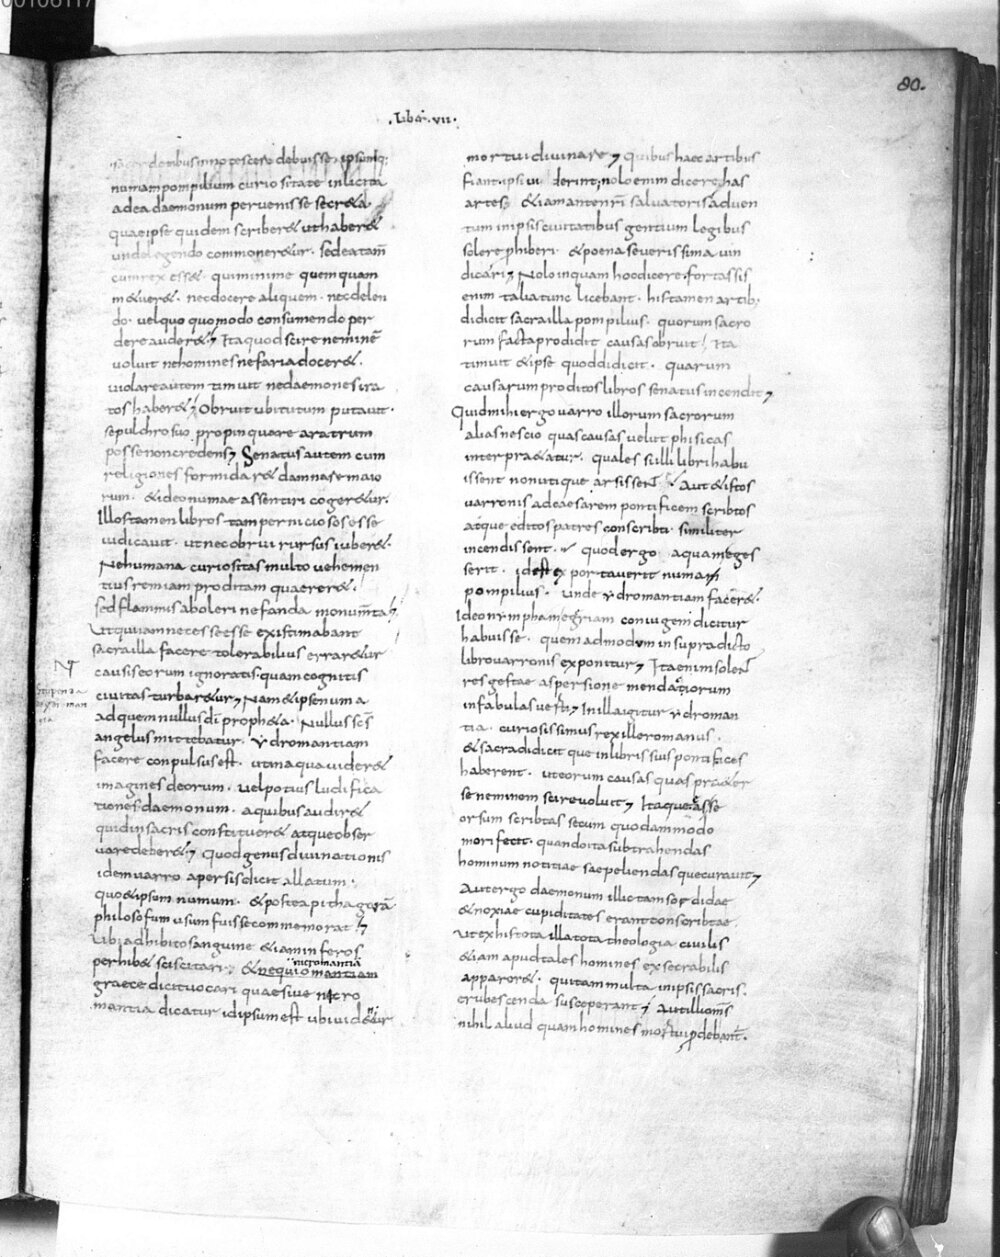 00106117
80.
.Liber.vii.
sacerdotibus innotescere debuisse. ipsumq;
numam pompilium curiositate inlicita
ad ea daemonum pervenisse secreta.
quae ipse quidem scriberet ut haberet
unde legendo commoneretur. sed ea tam̅
cum rex esset qui minime quemquam
metueret. nec docere aliquem. nec delen
do. vel quoquo modo consumendo per
dere auderet; Ita quod scire nemine̅
voluit ne homines nefaria doceret.
violare autem timuit ne daemones ira
tos haberet; Obruit ubi tutum putavit.
sepulchro suo propinquare aratrum
posse non credens; Senatus autem cum
religiones formidaret damnase maio
rum. & ideo numae assentiri cogeretur.
Illos tamen libros tam perniciosos esse
iudicavit. ut nec obrui rursus iuberet.
Ne humana curiositas multo vehemen
tius rem iam proditam quaereret.
sed flammis aboleri nefanda monum̅ta;
Ut qui iam necesse esse existimabant
sacra illa facere tolerabilius erraretur
causis eorum ignoratis. quam cognitis
civitas turbaretur; Nam & ipse numa
ad quem nullus di̅ propheta. Nullus sc̅s
angelus mittebatur. ydromantiam
facere conpulsus est. ut in aqua videret
imagines deorum. vel potius ludifica
tiones daemonum. a quibus audiret
quid in sacris constituere atque obser
vare deberet; quod genus divinationis
idem varro a persis dicit allatum.
quo & ipsum numum. & postea pithagora̅
philosofum usum fuisse commemorat;
Ubi adhibito sanguine etiam inferos
perhibet sciscitari; & nequiomantiam
nicromantia̅
graece dicit vocari quae sive nicro
mantia dicatur id ipsum est ubi videntur
N̅T
stupenda
mortui divinare; quibus haec artibus
fiant. ipsi viderint; nolo enim dicere has
artes etiam ante nr̅i salvatoris adven
tum in ipsis civitatibus gentium legibus
solere prohiberi. & poena severissima vin
dicari; Nolo inquam hoc dicere. fortassis
enim talia tunc licebant. his tamen artib;
didicit sacra illa pompilius. quorum sacro
rum facta prodidit causas obruit. Ita
timuit & ipse quod didicit. quarum
causarum proditos libros senatus incendit;
Quid mihi ergo varro illorum sacrorum
alias nescio quas causas velut phisicas
interpraetatur. quales si illi libri habu
issent non utique arsissent. Aut & istos
varronis ad caesarem pontificem scribtos
atque editos patres conscribti similiter
incendissent. quod ergo aquam eges
serit. id est exportaverit numa
pompilius. unde ydromantiam faceret.
Ideo nympham egriam coniugem dicitur
habuisse. quem admodum in supradicto
libro varronis exponitur; Ita enim solent
res gestae aspersione mendatiorum
in fabulas verti; In illa igitur ydroman
tia. curiosissimus rex ille romanus.
& sacra didicit que in libris suis pontifices
haberent. ut eorum causas quas praeter
se neminem scire voluit; Itaque asse
orsum scribtas secum quodammodo
mori fecit. quando ita subtrahendas
hominum notitiae saepeliendasque curavit;
Aut ergo daemonum illic tam sordidae
& noxiae cupiditates erant conscribtae.
Ut ex his tota illa tota theologia civilis
etiam apud tales homines execrabilis
appareret. qui tam multa in ipsis sacris.
erubescenda susceperant; Aut illi om̅s
nihil aliud quam homines mortui prodebant̅.